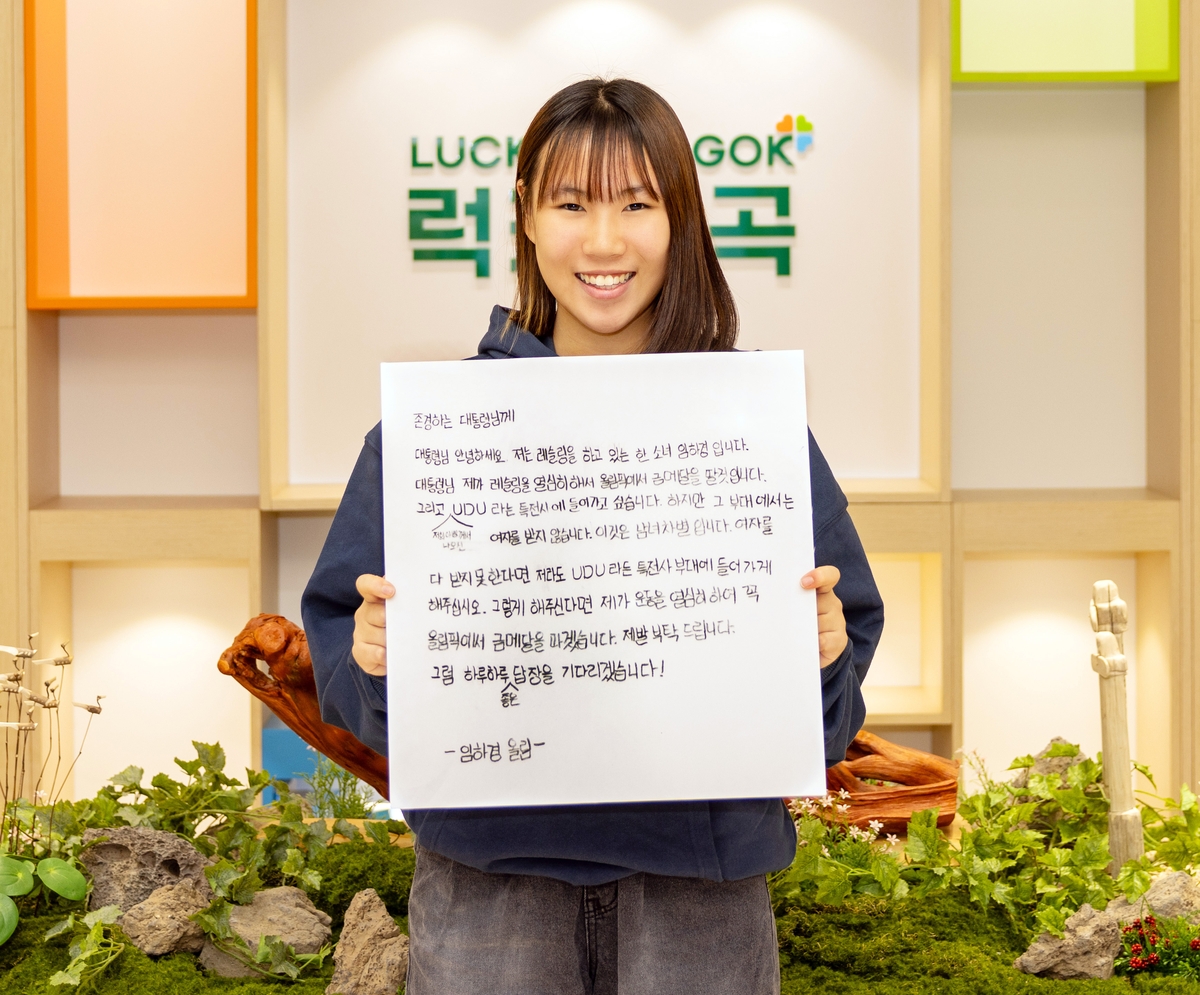 LUCK GOK
럭 곡
존경하는 대통령님께
대통령님 안녕하세요. 저는 레슬링을 하고 있는 한 소녀 임하경 입니다.
대통령님 제가 레슬링을 열심히 해서 올림픽에서 금메달을 딸것입니다.
그리고 UDU 라는 특전사에 들어가고 싶습니다. 하지만 그 부대에서는
여자를 받지 않습니다. 이것은 남녀차별 입니다. 여자를
다 받지 못한다면 저라도 UDU 라는 특전사 부대에 들어가게
해주십시오. 그렇게 해주신다면 제가 운동을 열심히 하여 꼭
올림픽에서 금메달을 따겠습니다. 제발 부탁 드립니다.
그럼 하루하루 답장을 기다리겠습니다!
좋은
- 임하경 올림 -